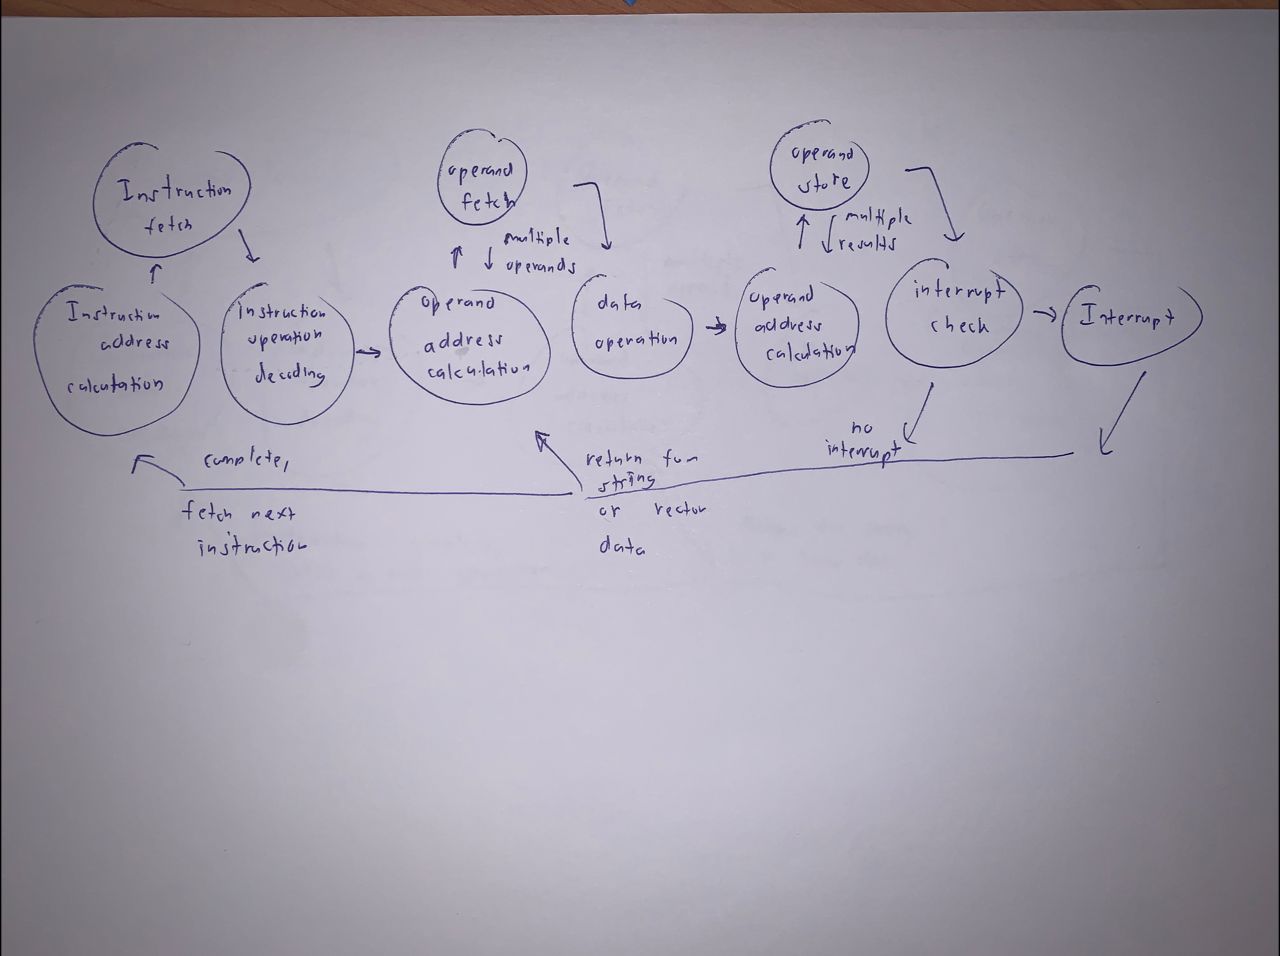 Instruction
fetch
operand
fetch
operand
store
multiple
operands
multiple
results
Instruction
address
calculation
instruction
operation
decoding
operand
address
calculation
data
operation
operand
address
calculation
interrupt
check
Interrupt
no
interrupt
complete,
fetch next
instruction
return for
string
or vector
data